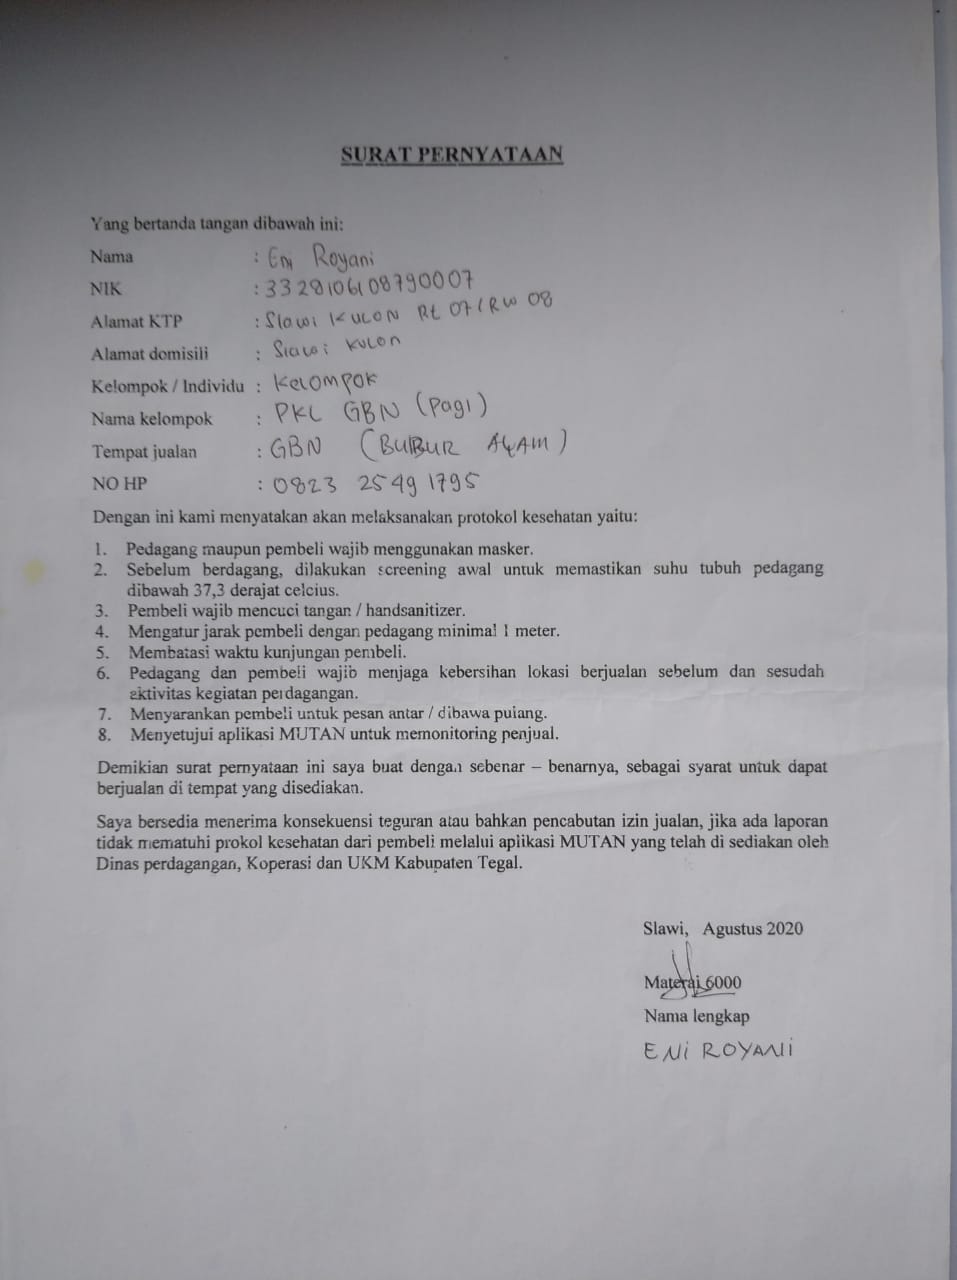 SURAT PERNYATAAN
Yang bertanda tangan dibawah ini:
Nama : Eni Royani
NIK : 3328106108790007
Alamat KTP : Slawi Kulon Rt 07/RW 08
Alamat domisili : Slawi Kulon
Kelompok / Individu : Kelompok
Nama kelompok : PKL GBN (Pagi)
Tempat jualan : GBN (BUBUR AYAM)
NO HP : 0823 2549 1795
Dengan ini kami menyatakan akan melaksanakan protokol kesehatan yaitu:
1. Pedagang maupun pembeli wajib menggunakan masker.
2. Sebelum berdagang, dilakukan screening awal untuk memastikan suhu tubuh pedagang
dibawah 37,3 derajat celcius.
3. Pembeli wajib mencuci tangan / handsanitizer.
4. Mengatur jarak pembeli dengan pedagang minimal 1 meter.
5. Membatasi waktu kunjungan pembeli.
6. Pedagang dan pembeli wajib menjaga kebersihan lokasi berjualan sebelum dan sesudah
aktivitas kegiatan perdagangan.
7. Menyarankan pembeli untuk pesan antar / dibawa pulang.
8. Menyetujui aplikasi MUTAN untuk memonitoring penjual.
Demikian surat pernyataan ini saya buat dengan sebenar – benarnya, sebagai syarat untuk dapat
berjualan di tempat yang disediakan.
Saya bersedia menerima konsekuensi teguran atau bahkan pencabutan izin jualan, jika ada laporan
tidak mematuhi prokol kesehatan dari pembeli melalui aplikasi MUTAN yang telah di sediakan oleh
Dinas perdagangan, Koperasi dan UKM Kabupaten Tegal.
Slawi, Agustus 2020
Materai 6000
Nama lengkap
ENI ROYANI